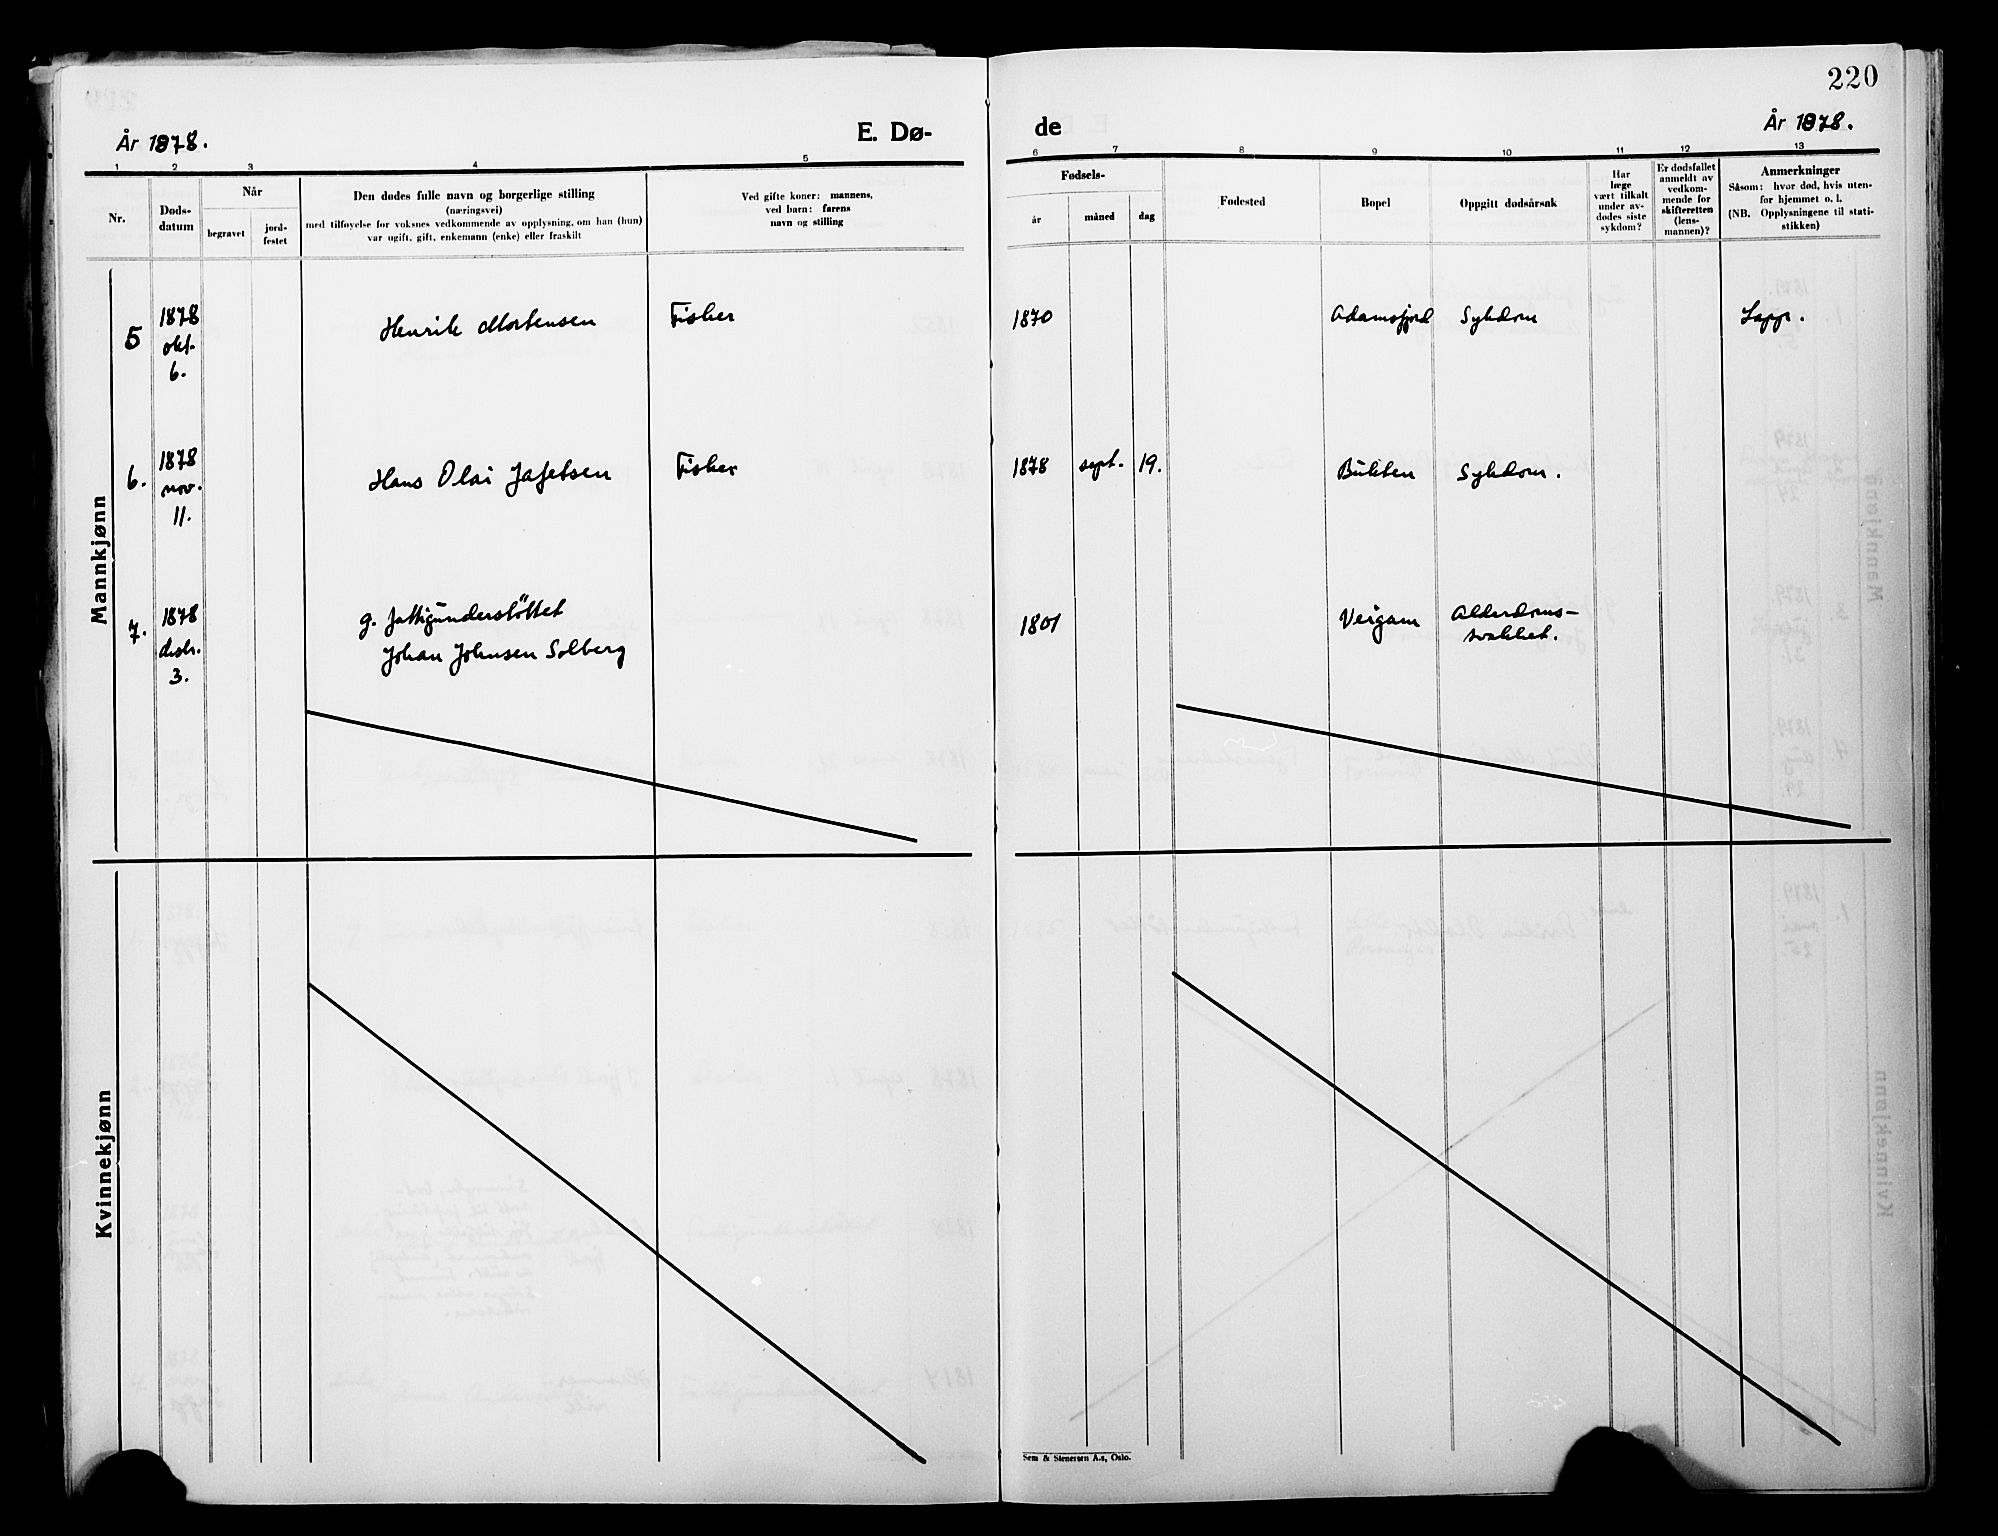 220
År 1878.
E. Dø-
de
År 1878.
1 2 3 4 5
6 7 8 9 10 11 12 13
Nr.
Døds-
datum
Når
begravet
jord-
festet
Den dødes fulle navn og borgerlige stilling
(næringsvei)
med tilføyelse for voksnes vedkommende av opplysning, om han (hun)
var ugift, gift, enkemann (enke) eller fraskilt
Ved gifte koner: mannens,
ved barn: farens
navn og stilling
Fødsels-
år
måned
dag
Fødested
Bopel
Oppgitt dødsårsak
Har
læge
vært tilkalt
under av-
dødes siste
sykdom?
Er dødsfallet
anmeldt av
vedkom-
mende for
skifteretten
(lens-
mannen)?
Anmerkninger
Såsom: hvor død, hvis uten-
for hjemmet o. l.
(NB. Opplysningene til stati-
stikken)
Mannkjønn
5
1878
okt.
6.
Henrik Mortensen
Fisker
1870
Adamsfjord
Sykdom
Lapp.
6.
1878
nov.
11.
Hans Olai Jafetsen
Fisker
1878 sept. 19.
Bukten
Sykdom.
7.
1878
desbr.
3.
g. fattigunderstöttet
Johan Johnsen Solberg
1801
Veigam
Alderdoms-
svakhet.
Kvinnekjønn
Sem & Stenersen A.s, Oslo.